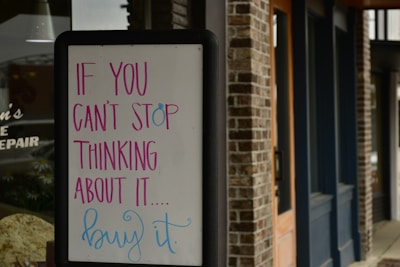 IF YOU
CAN'T STOP
THINKING
ABOUT IT....
buy it.
REPAIR